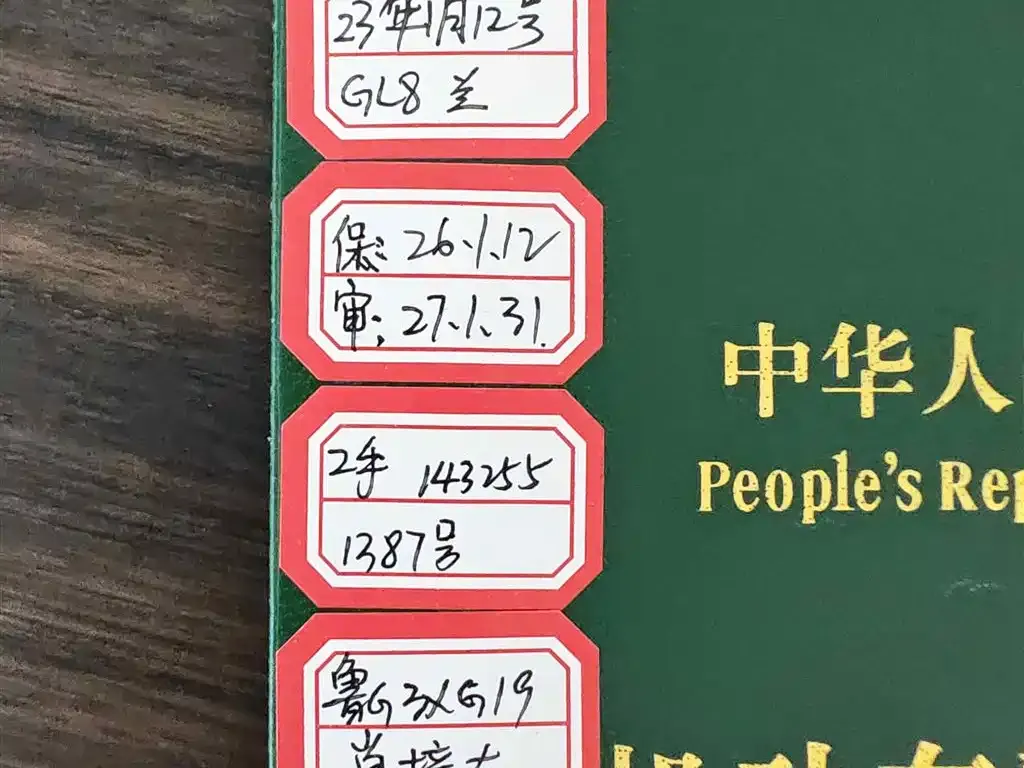 23年1月12号
GL8 兰
保: 26.1.12
审: 27.1.31.
2手 143255
1387号
鲁G3XG19
中华人
People's Rep